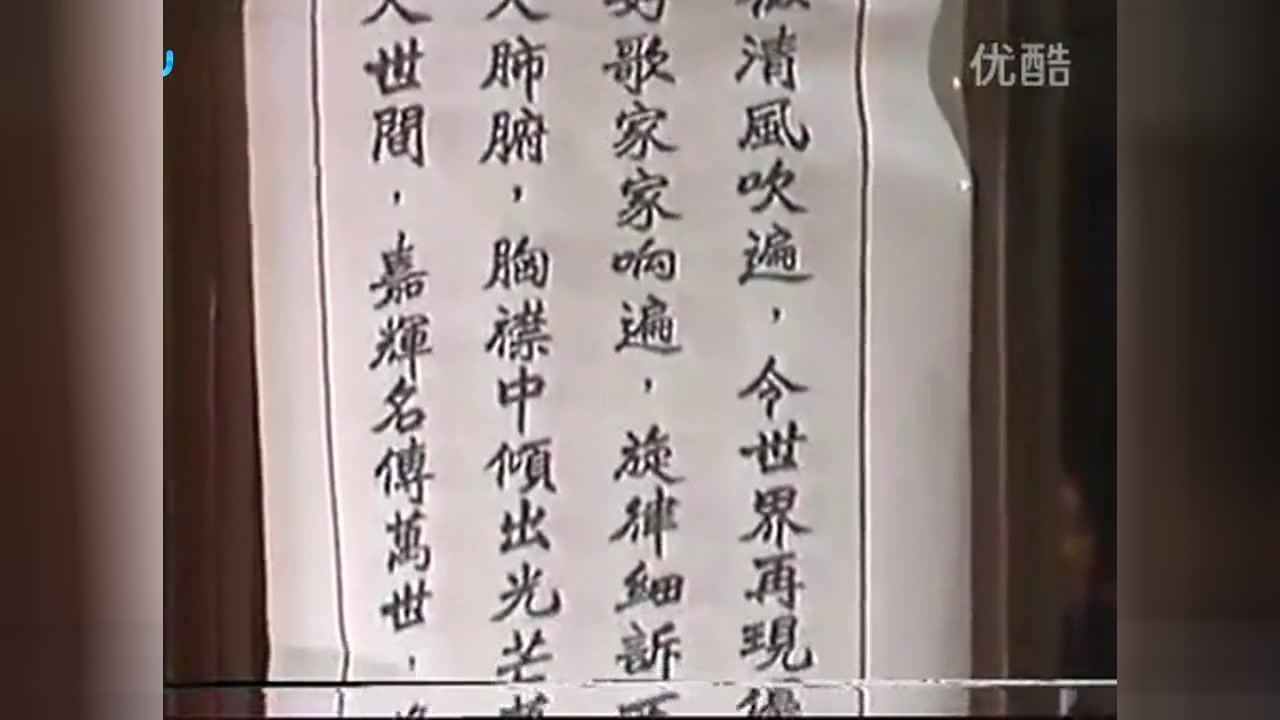 清風吹遍，令世界再現優
歌家家响遍，旋律細訴
肺腑，胸襟中傾出光芒萬
世間，嘉輝名傳萬世，
优酷